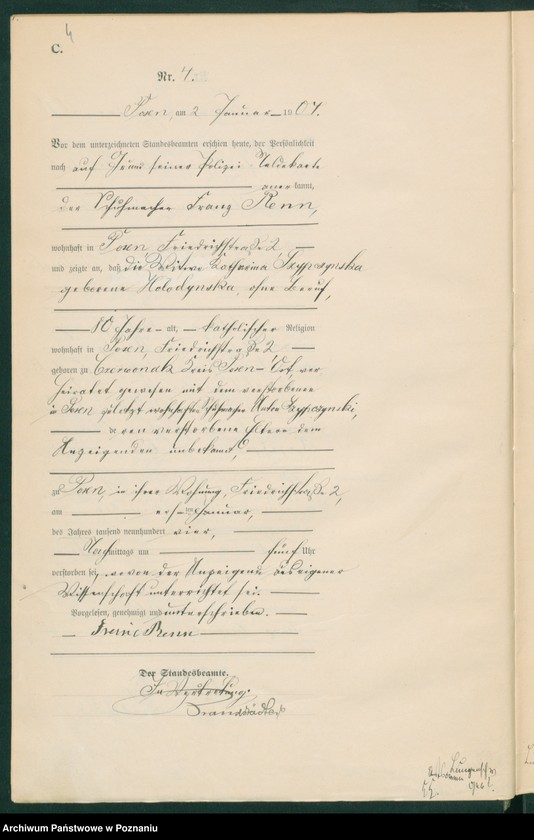 4
C.
Nr. 4.
Posen, am 2 Januar 1904.
Vor dem unterzeichneten Standesbeamten erschien heute, der Persönlichkeit
nach auf Grund seiner Polizei Meldekarte
anerkannt,
der Schuhmacher Franz Renn,
wohnhaft in Posen, Friedrichstraße 2,
und zeigte an, daß die Witwe Katharina
geborene Holodynska, ohne Beruf,
80 Jahre alt, katholischer Religion
wohnhaft in Posen, Friedrichstraße 2,
geboren zu Czerwonak Kreis Posen-Ost, ver
heiratet gewesen mit dem verstorbenen
in Posen zuletzt wohnhaften Schuhmacher Anton
deren verstorbene Eltern dem
Anzeigenden unbekannt,
zu Posen, in ihrer Wohnung, Friedrichstraße 2,
am ersten Januar,
des Jahres tausend neunhundert vier,
Nachmittags um fünf Uhr
verstorben sei, wovon der Anzeigende aus eigener
Wissenschaft unterrichtet sei.
Vorgelesen, genehmigt und unterschrieben.
Renn
Der Standesbeamte.
In Vertretung.
Archiwum Państwowe w Poznaniu